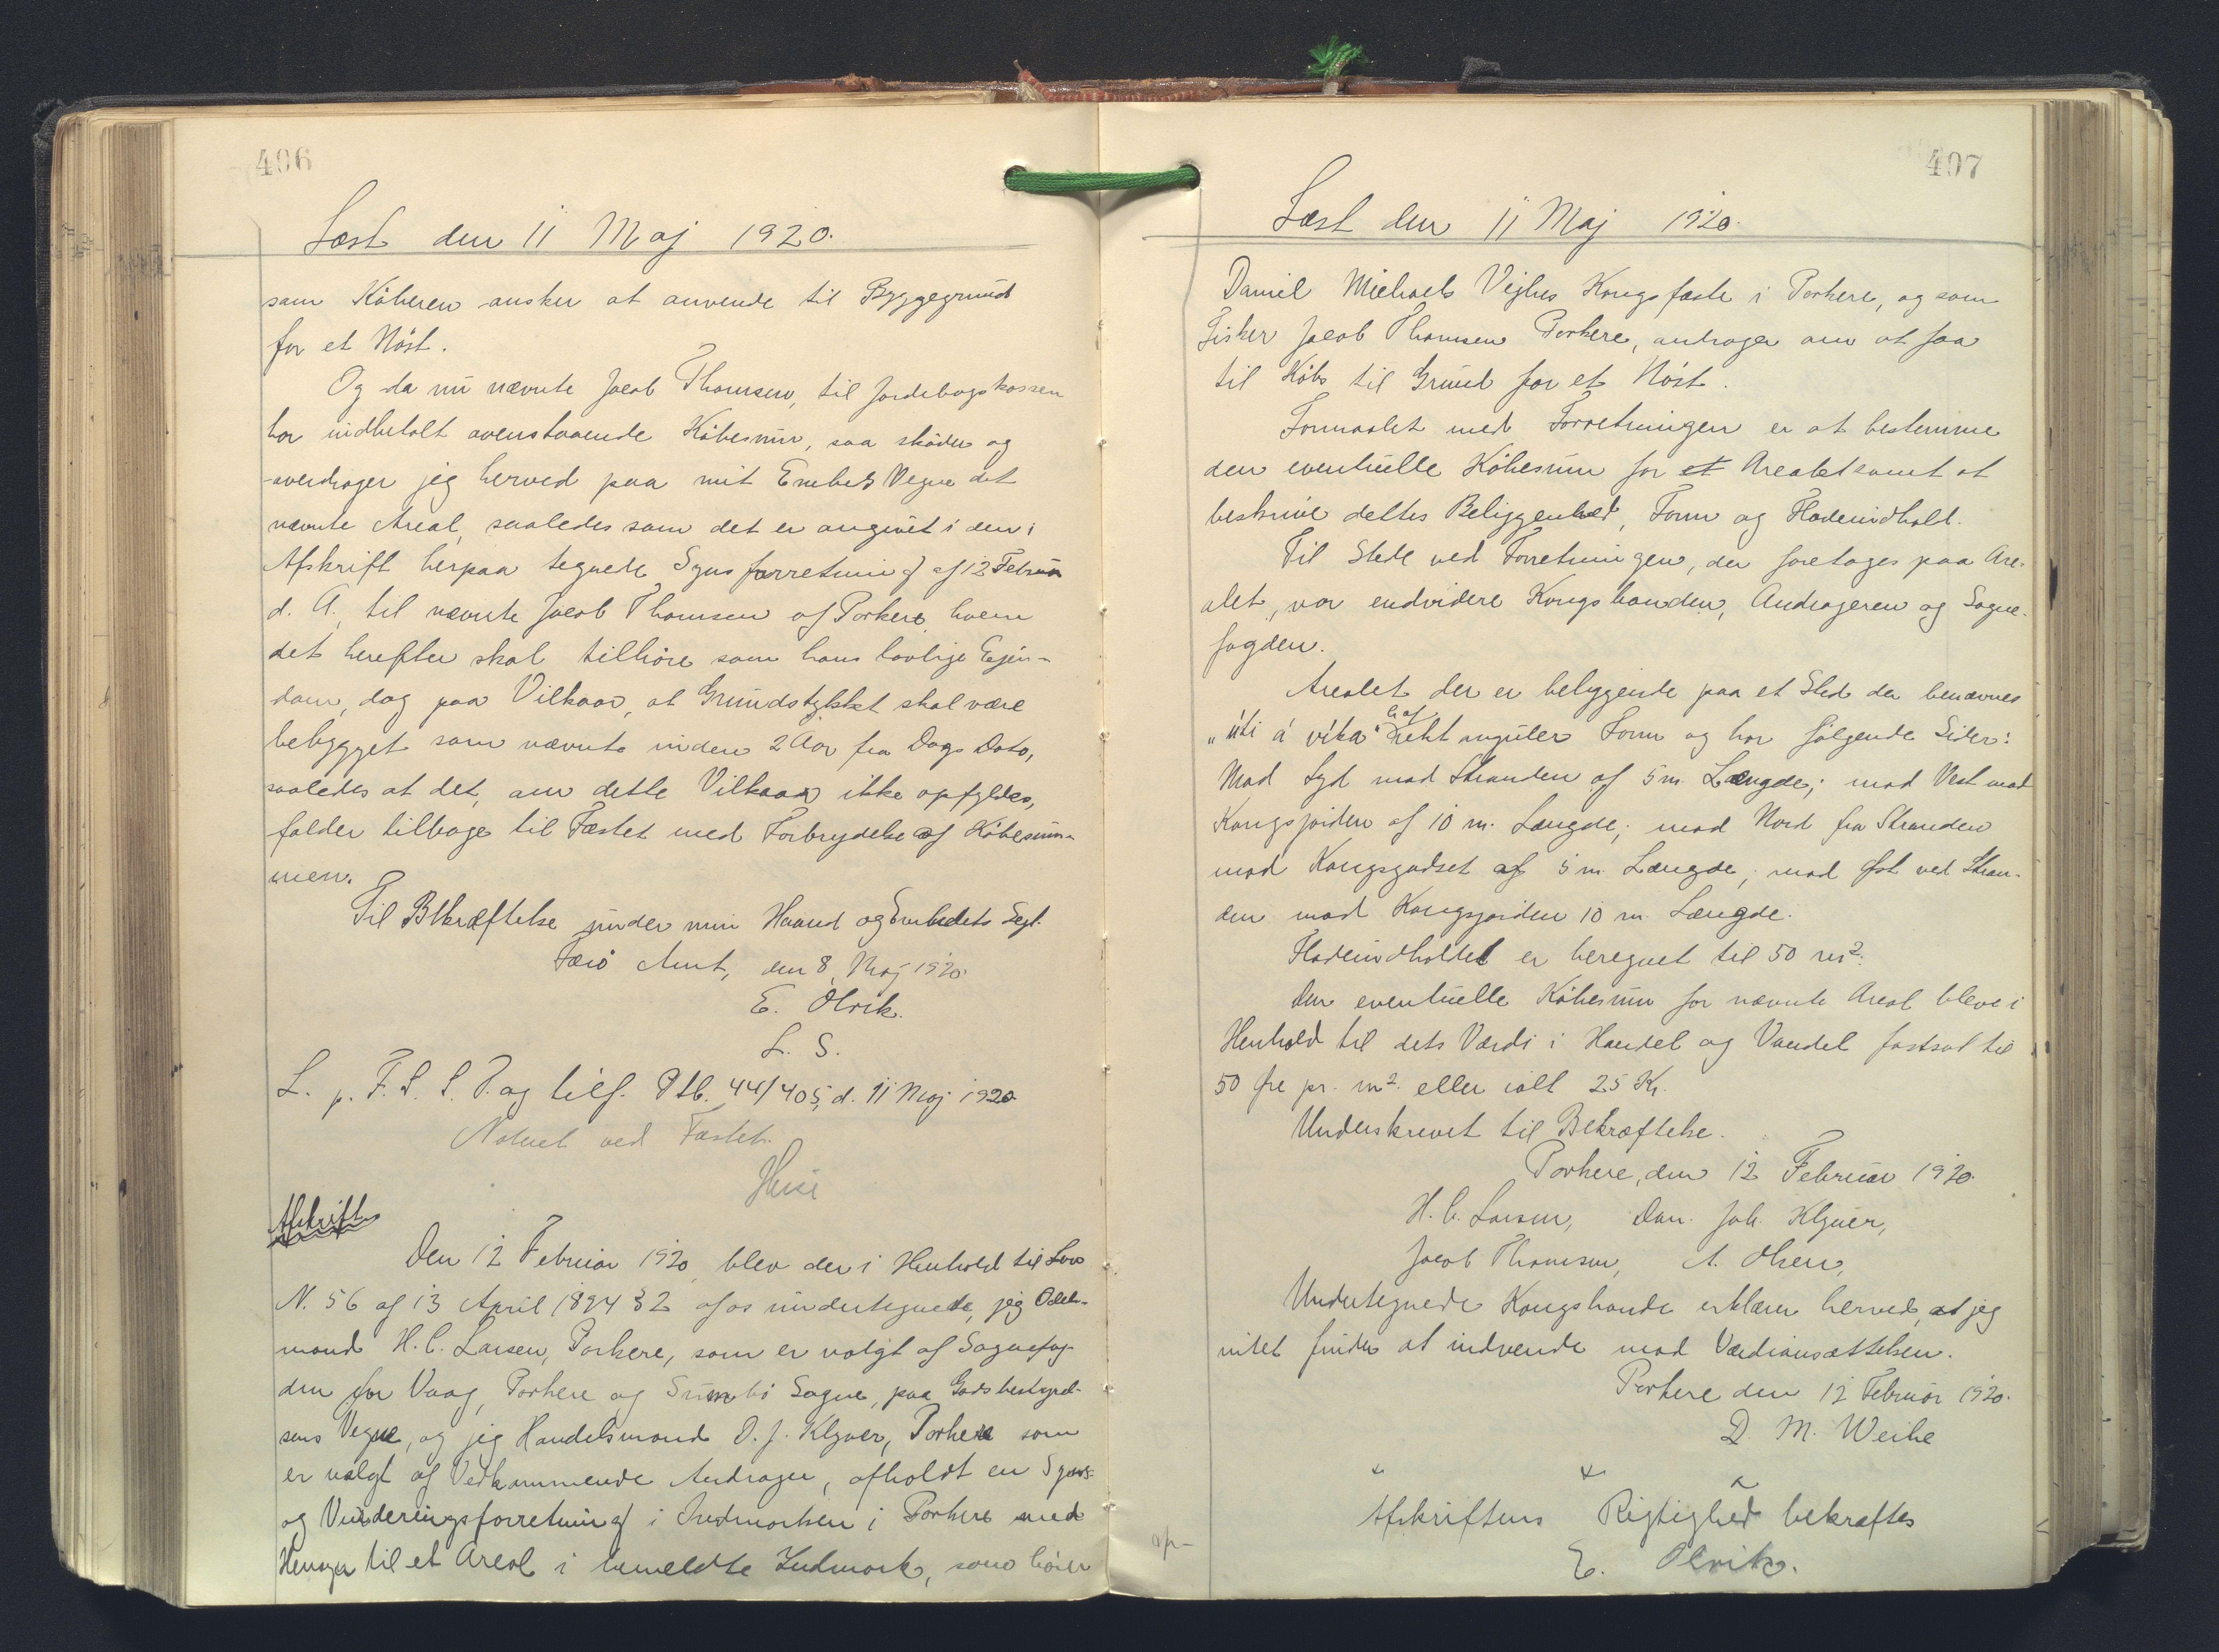 406
Læst den 11 Maj 1920.
som Köberen ønsker at anvende til Byggegrund
for et Nöst.
Og da nu nævnte Jacob Thomsen, til Jordebogskassen
har indbetalt ovenstaaende Köbesum, saa sköder og
overdrager jeg herved paa mit Embeds Vegne det
nævnte Areal, saaledes som det er angivet i den i
Afskrift herpaa tegnede Synsforretning af 12 Februar
d. A. til nævnte Jacob Thomsen af Porkere hvem
det herefter skal tilhöre som hans lovlige Ejen-
dom, dog paa Vilkaar, at Grundstykket skal være
bebygget som nævnte inden 2 Aar fra Dags Dato,
saaledes at det, om dette Vilkaar ikke opfyldes,
falder tilbage til Fæstet med Forbrydelse af Köbesum-
men.
Til Bekræftelse under min Haand og Embedets Segl.
Færö Amt, den 8 Maj 1920
E. Olrik.
L. S.
L. p. F. S. S. T. og tilf. Ptb. 44/405, d. 11 Maj 1920
Noteret ved Fæstet.
Afskrift
Den 12 Februar 1920 blev der i Henhold til Lov
N. 56 af 13 April 1894 § 2 af os undertegnede, jeg Odels-
mand H. C. Larsen, Porkere, som er valgt af Sognefog-
den for Vaag, Porkere og Sumbö Sogne, paa Godsbestyrel-
sens Vegne, og jeg Handelsmand D. J. Kljver, Porkere som
er valgt af Vedkommende Andrager, afholdt en Syns-
og Vurderingsforretning i Indmarken i Porkere med
Hensyn til et Areal i bemeldte Indmark, som hörer
407
Læst den 11 Maj 1920.
Daniel Michaels Vejhes Kongsfæste i Porkere, og som
Fisker Jacob Thomsen Porkere, andrager om at faa
til Köbs til Grund for et Nöst.
Formaalet med Forretningen er at bestemme
den eventuelle Köbesum for et Arealet samt at
beskrive dettes Beliggenhed, Form og Fladeindhold.
Til Stede ved Forretningen, der foretages paa Are-
alet, var endvidere Kongsbonden, Andrageren og Sogne-
fogden.
Arealet der er beliggende paa et Sted der benævnes
"úti á vika" har af rektangulær Form og har fölgende Sider:
Mod Syd mod Stranden af 5 m. Længde; mod Vest mod
Kongsjorden af 10 m. Længde; mod Nord fra Stranden
mod Kongsgodset af 5 m. Længde, mod Øst ved Stran-
den mod Kongsjorden 10 m. Længde.
Fladeindholdet er beregnet til 50 m².
Den eventuelle Köbesum for nævnte Areal bleve i
Henhold til dets Værdi i Handel og Vandel fastsat til
50 Øre pr. m² eller ialt 25 Kr.
Underskrevet til Bekræftelse.
Porkere, den 12 Februar 1920.
H. C. Larsen, Dan. Joh. Kljver,
Jacob Thomsen, A. Olsen,
Undertegnede Kongsbonde erklærer herved, at jeg
intet finder at indvende mod Værdiansættelsen.
Porkere den 12 Februar 1920.
D. M. Weihe
Afskriftens Rigtighed bekræftes
E. Olrik.